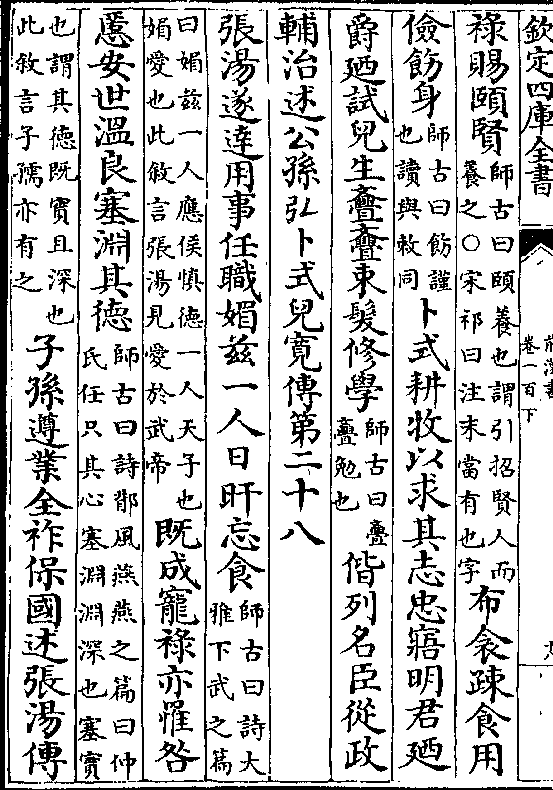 欽定四庫全書
前漢書
卷一百下
祿賜頤賢師古曰頤養也謂引招賢人而
養之○宋祁曰注末當有也字布衾疎食用
儉飭身師古曰飭謹
也讀與敕同卜式耕牧以求其志忠寤明君廼
爵廼試兒生亹亹束髮修學師古曰亹
亹勉也偕列名臣從政
輔治述公孫弘卜式兒寛傳第二十八
張湯遂達用事任職媚兹一人日旰忘食師古曰詩大
雅下武之篇
曰媚兹一人應侯慎德一人天子也
媚愛也此敘言張湯見愛於武帝既成寵祿亦罹咎
慝安世溫良塞淵其德師古曰詩邶風燕燕之篇曰仲
氏任只其心塞淵淵深也塞實
也謂其德既實且深也
此敘言子孺亦有之子孫遵業全祚保國述張湯傳